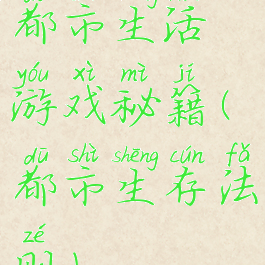 都市生活
yóu xì mì jí
游戏秘籍(
dū shì shēng cún fǎ
都市生存法
zé
则)